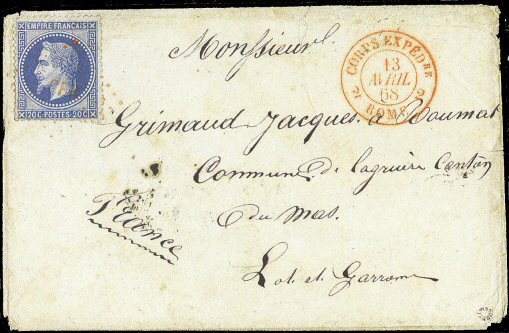 EMPIRE FRANÇAIS
20C POSTES 20C
Monsieur
CORPS EXPÉDRE
13
AVRIL
68
2 ROME 2
Grimaud Jacques à Doumat
Commune de Lagruère Canton
du Mas
France
Lot et Garronne